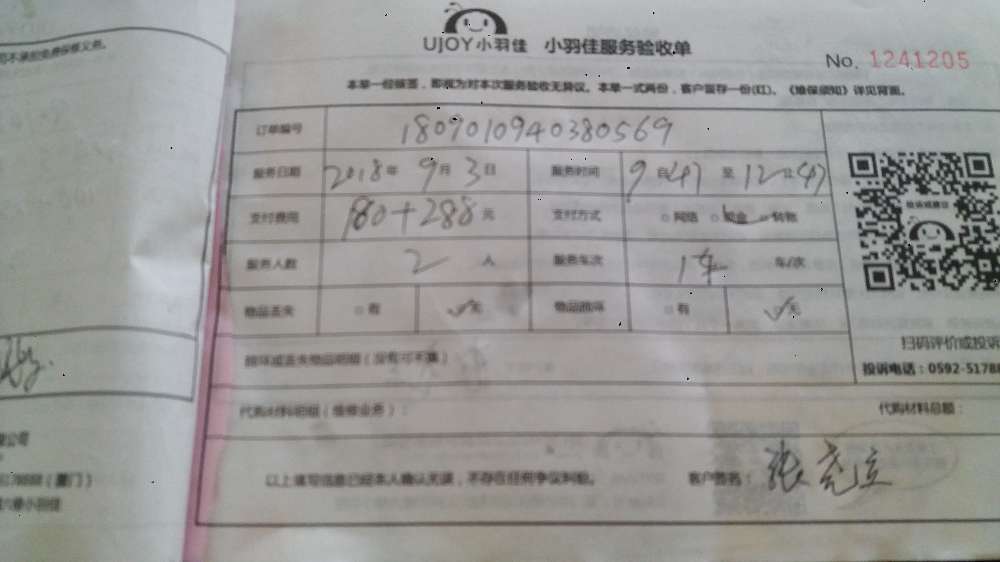 可不承担免费保修义务。
UJOY小羽佳 小羽佳服务验收单
No. 1241205
本单一经核签，即视为对本次服务验收无异议。本单一式两份，客户留存一份(红)。《维保须知》详见背面。
订单编号 1809010940380569
服务日期 2018年 9月 3日 服务时间 9点47 至 12点47
支付费用 180+288 元 支付方式 网络 现金 转账
服务人数 2 人 服务车次 1车 车/次
物品丢失 有 无 物品损坏 有 无
投诉或建议
损坏或丢失物品明细（没有可不填）
扫码评价或投诉
投诉电话：0592-5178
代购材料明细（维修业务）： 代购材料总额：
以上填写信息已经本人确认无误，不存在任何争议纠纷。 客户签名：
公司
（厦门）
小羽佳